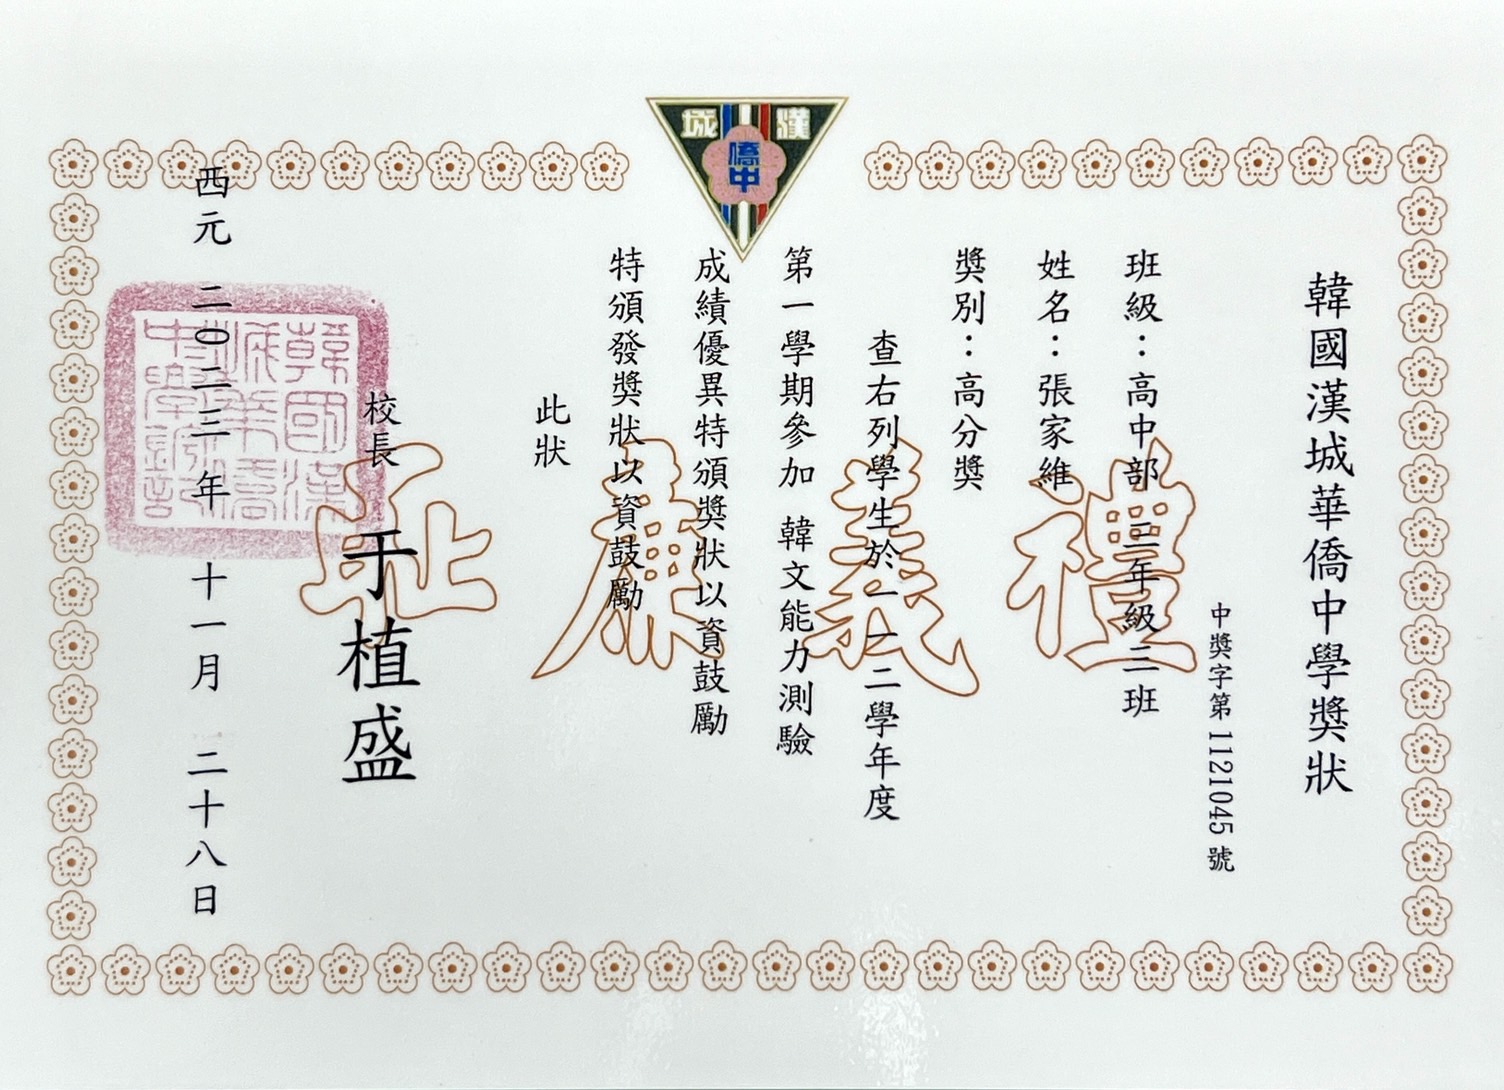 漢城
僑中
韓國漢城華僑中學獎狀
中獎字第1121045號
班級：高中部 年級 班
姓名：張家維
獎別：高分獎
查右列學生於一一二學年度
第一學期參加 韓文能力測驗
成績優異特頒獎狀以資鼓勵
特頒發獎狀以資鼓勵
此狀
校長 于植盛
西元 二〇二三年 十一月 二十八日
禮義廉耻
韓國漢
城華僑
中學鈐記